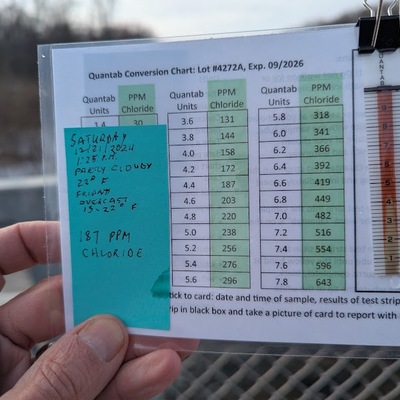 Quantab Conversion Chart: Lot #4272A, Exp. 09/2026
Quantab Units PPM Chloride
1.4 30
Quantab Units PPM Chloride
3.6 131
3.8 144
4.0 158
4.2 172
4.4 187
4.6 203
4.8 220
5.0 238
5.2 256
5.4 276
5.6 296
5.8 318
6.0 341
6.2 366
6.4 392
6.6 419
6.8 449
7.0 482
7.2 516
7.4 554
7.6 596
7.8 643
SATURDAY
12/21/2024
1:25 P.M.
PARTLY CLOUDY
22° F
FRIDAY
OVERCAST
19-22° F
187 PPM
CHLORIDE
tick to card: date and time of sample, results of test strip
rip in black box and take a picture of card to report with
QUANTAB